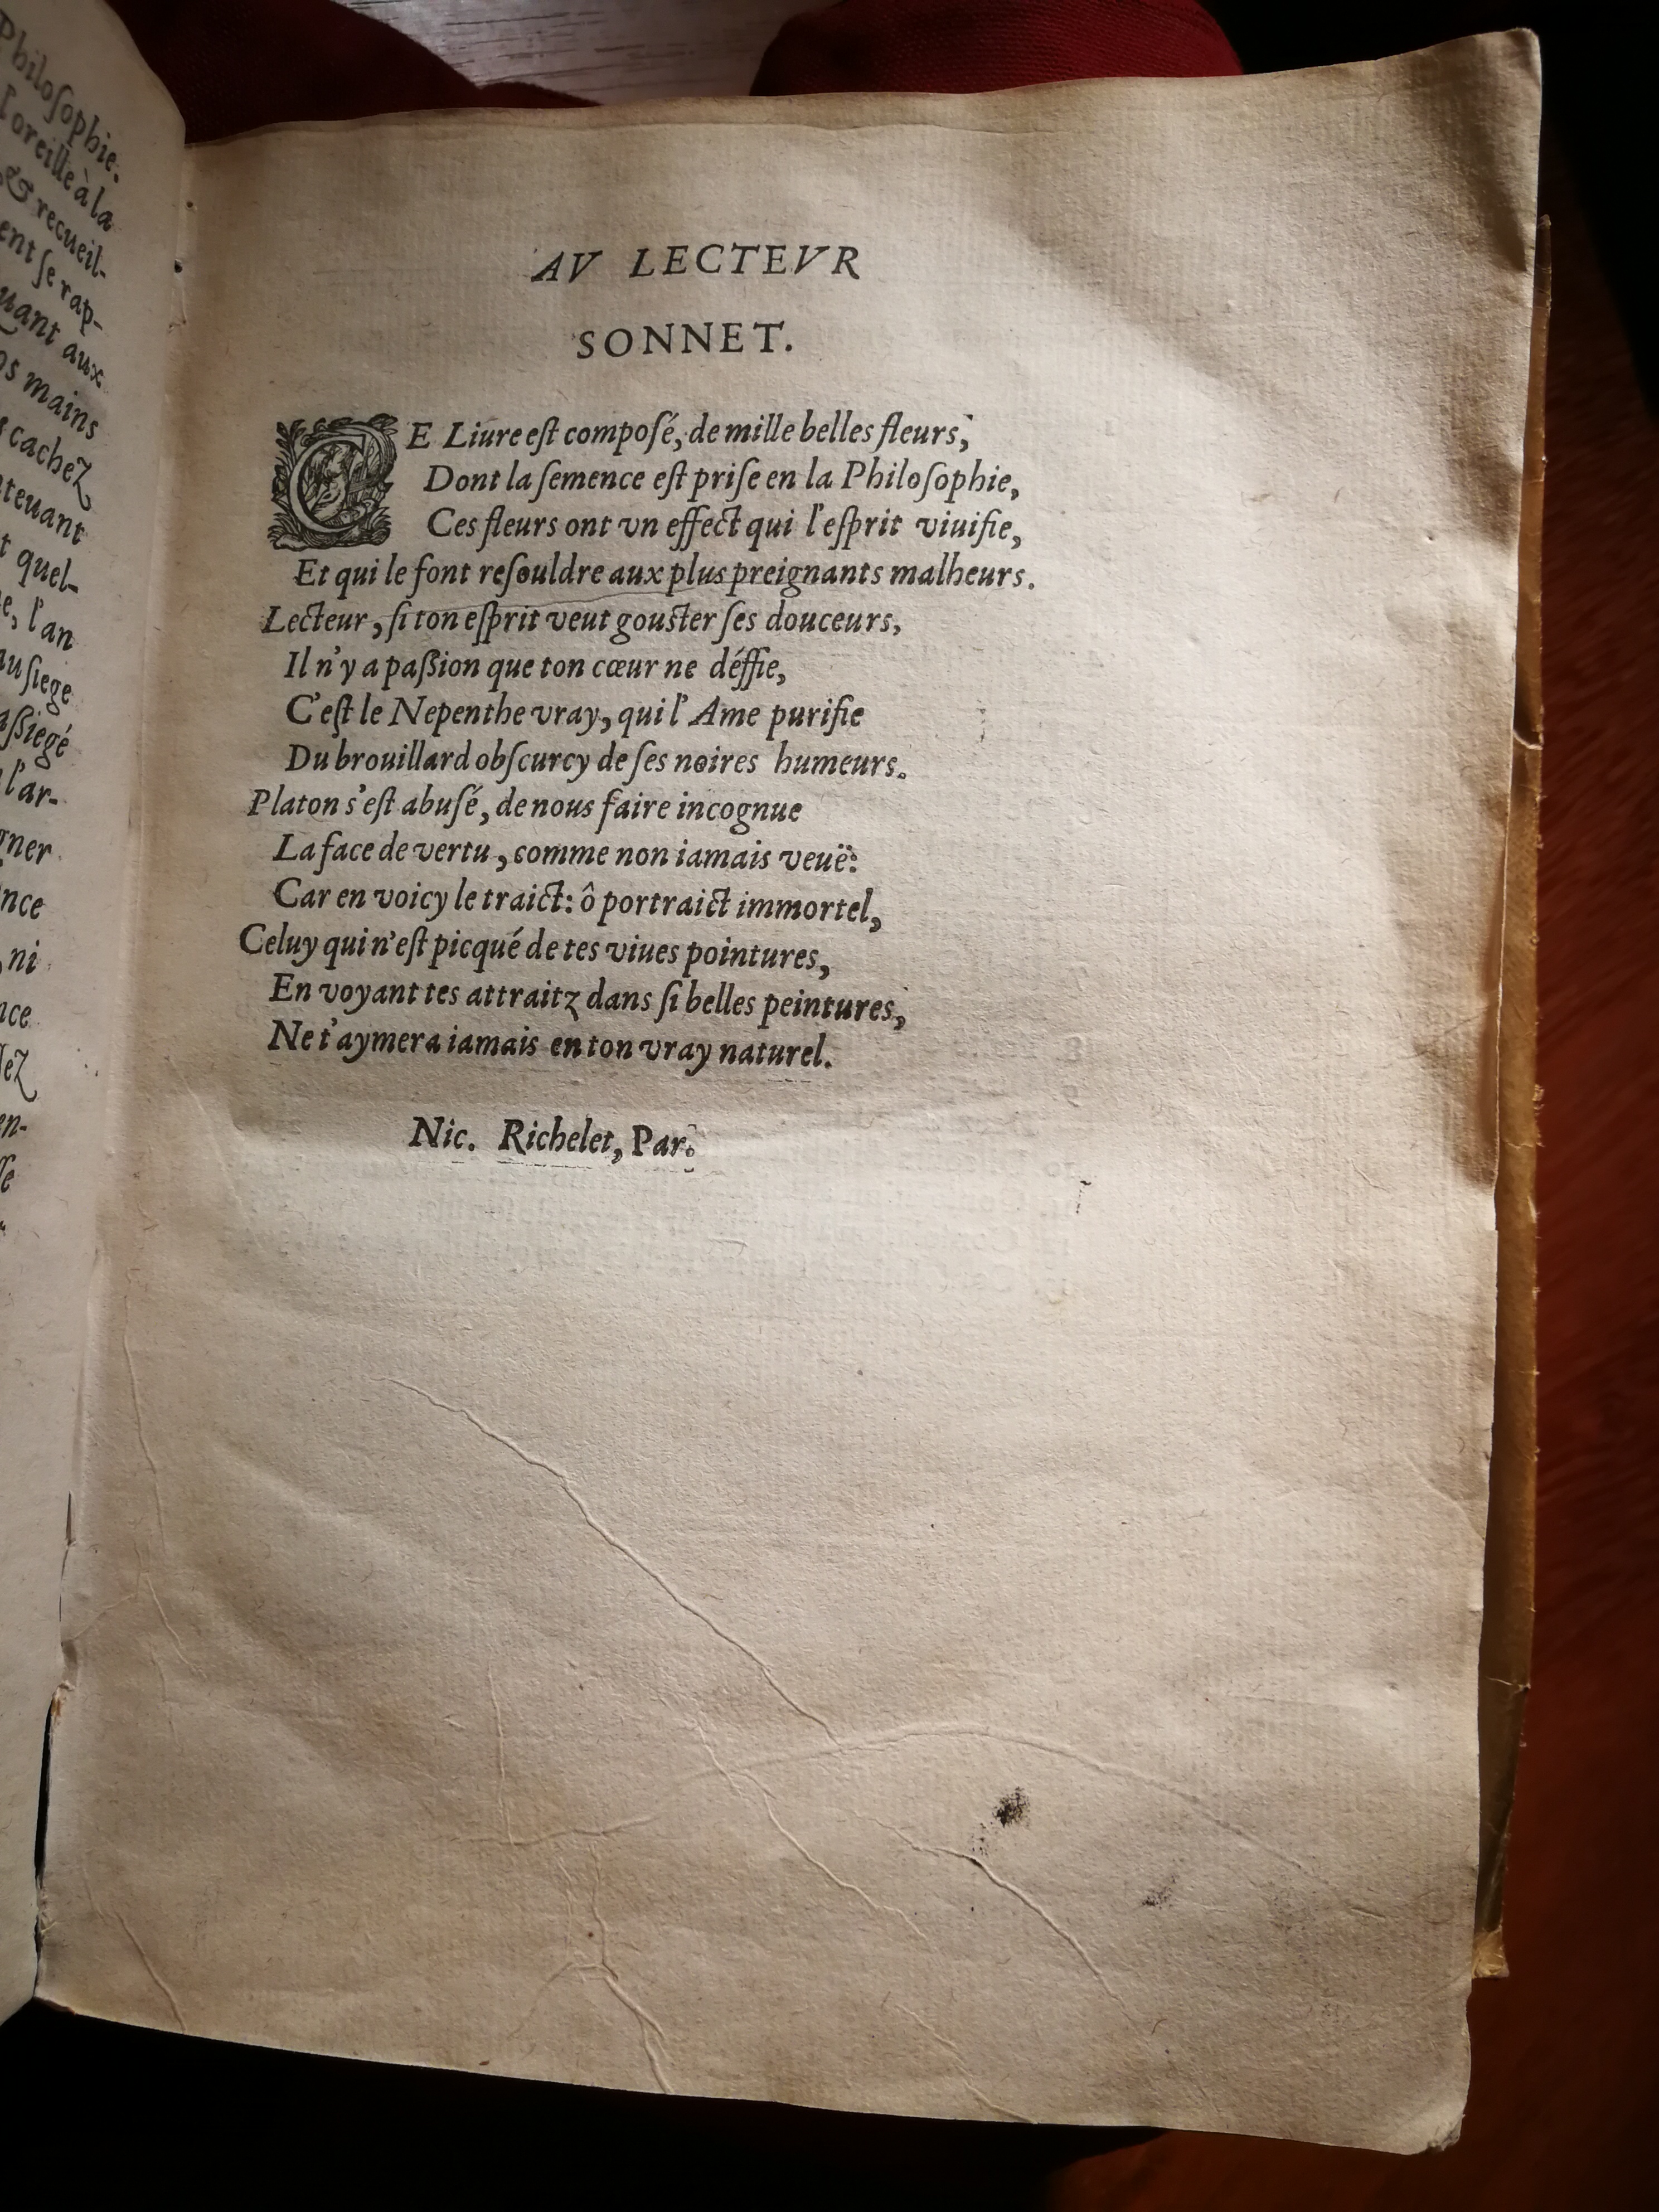 Philoſophie.
l'oreille à la
& recueil-
ent ſe rap-
uant aux
os mains
cachez
tenant
t quel-
e, l'an
au ſiege
aßiegé
l'ar-
gner
nce
ni
nce
lez
en-
ſſe
AV LECTEVR
SONNET.
CE Liure eſt compoſé, de mille belles fleurs,
Dont la ſemence eſt priſe en la Philoſophie,
Ces fleurs ont vn effect qui l'eſprit viuifie,
Et qui le font reſouldre aux plus preignants malheurs.
Lecteur, ſi ton eſprit veut gouſter ſes douceurs,
Il n'y a paßion que ton cœur ne déffie,
C'eſt le Nepenthe vray, qui l'Ame purifie
Du brouillard obſcurcy de ſes noires humeurs.
Platon s'eſt abuſé, de nous faire incognue
La face de vertu, comme non iamais veuë:
Car en voicy le traict: ô portraict immortel,
Celuy qui n'eſt picqué de tes viues pointures,
En voyant tes attraitz dans ſi belles peintures,
Ne t'aymera iamais en ton vray naturel.
Nic. Richelet, Par.